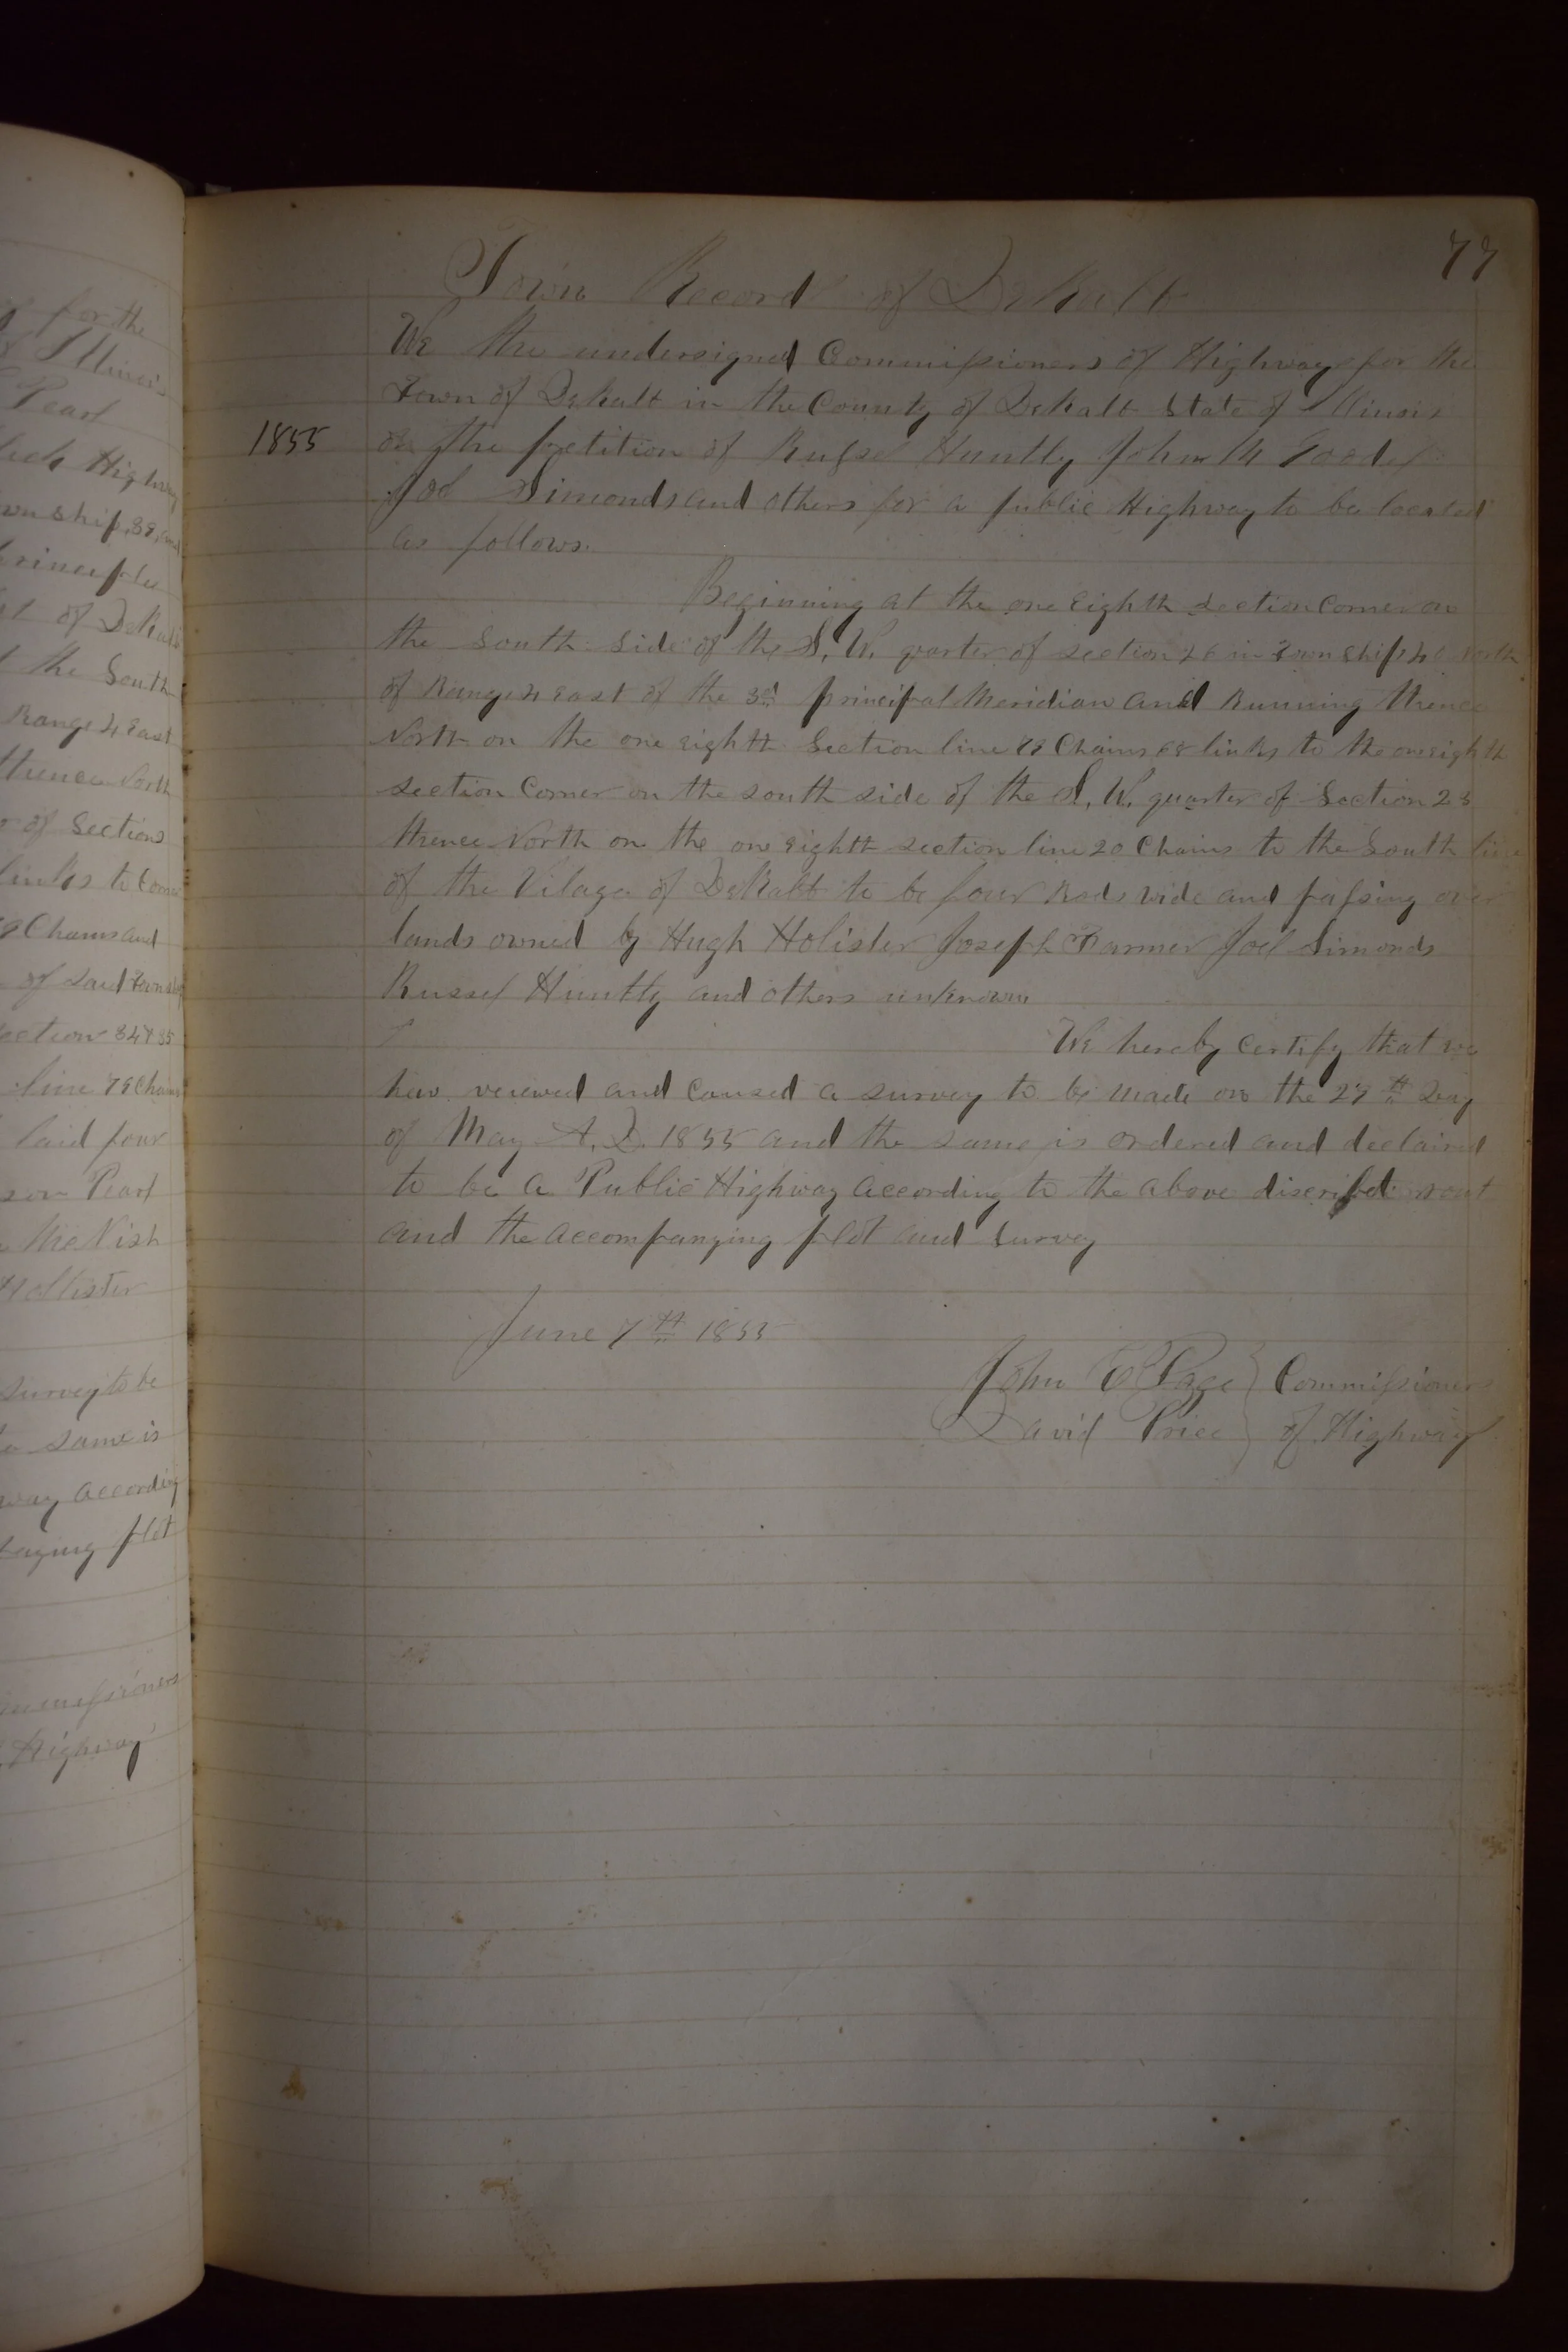 for the
of Illinois
Pearl
High
Township 39, and
principle
of DeKalb
the South
Range 4 East
thence North
of Sections
links to Corner
Chains and
of said Township
section 34 & 35
line 79 Chains
laid four
Pearl
McNish
Hollister
survey to be
same is
according
plot
Commissioners
Highway
77
Town Record of DeKalb
We the undersigned Commissioners of Highways for the
Town of DeKalb in the County of DeKalb State of Illinois
1855
on the petition of Russel Huntly John M Goodel
Joel Simonds and others for a public Highway to be located
as follows.
Beginning at the one eighth section corner on
the South side of the S, W, quarter of section 26 in Township 40 North
of Range 4 east of the 3rd principal Meridian and Running thence
North on the one eighth Section line 79 Chains 68 links to the one eighth
section corner on the south side of the S, W, quarter of Section 23
thence North on the one eighth section line 20 Chains to the South line
of the Vilage of DeKalb to be four Rods wide and passing over
lands owned by Hugh Holister Joseph Farmer Joel Simonds
Russel Huntly and others unknown
We hereby certify that we
hav veiwed and caused a survey to be made on the 29th Day
of May A. D. 1855 and the same is ordered and declaird
to be a Public Highway according to the above discribed rout
and the accompanying plot and survey
June 7th 1855
John E Page } Commissioners
David Price } of Highway